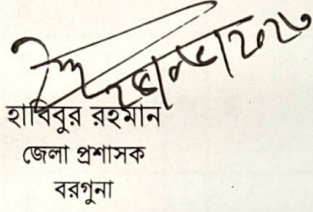 হাবিবুর রহমান
জেলা প্রশাসক
বরগুনা